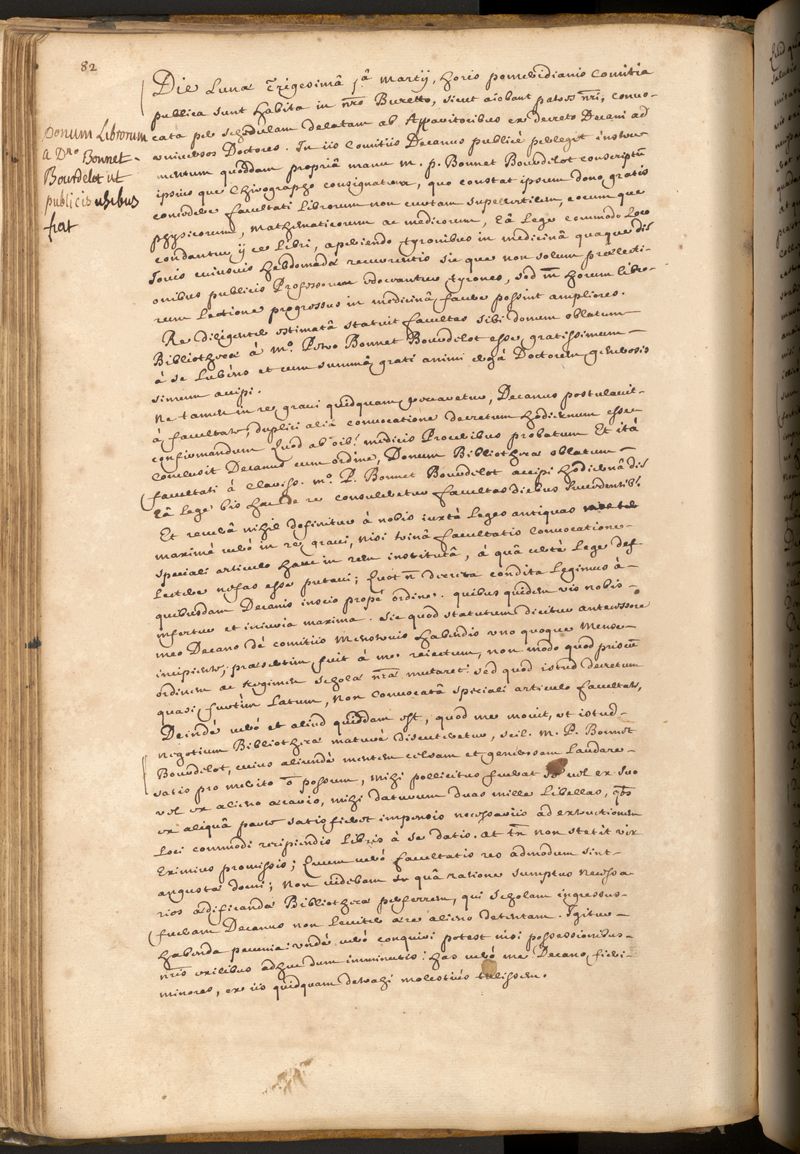 82
Donum Librorum
a Dno Bonnet
Bourdelot ut
publicis usibus
fiat
Die Lunæ Trigesimâ 1â Martij, horis pomeridianis Comitia
publica sunt habita in nro Buretto, sicut aiebant patres nri, convo-
cata per schedulam delatam ab Apparitoribus ex decreto Decani ad
universos Doctores. In iis Comitiis Decanus publicè perlegit instru-
mentum quoddam propriâ manu m. p. Bonnet Bourdelot conscriptu
ipsius que Chirographo consignatum, quo constat ipsum dono gratis
concedere facultati Librorum non curtam supellectilem, eorum que
physicorum, mathematicorum ac medicorum, Eâ Lege commodo Loco
condantur ij ces Libri, aperiendo tyronibus in medicinâ quaque die
Jovis cuiusvis hebdomadæ recurrentis sic que non solum prælecti-
onibus publicis Professorum edocerentur tyrones, sed horum libro-
rum Lectione progressus in medicinâ facere possint ampliores.
Re diligenter æstimatâ statuit facultas sibi donum oblatum
Bibliothecæ à mo. Petro Bonnet Bourdelot esse gratissimum
à se Lubens et cum summâ grati animi ergà Doctorem generosis
simum accipi.
Ne tamen in re gravi quidquam peccaretur, Decanus postulavit
à facultate, duplici aliâ convocatione decretum hodiernum esse
confirmandum Quod ab oib. medicis Proceribus probatum Et ità
Conclusit Decanus cum ordine, Donum Bibliothecæ oblatum
facultati à Clariss. mo. P. Bonnet Bourdelot accipi hodiernâ die
Eâ Lege bis hac de re consuleretur facultas diebus
Et reverâ nihil definitur à nobis iuxtà Leges antiquas
maximè verò in re gravi, nisi trinâ facultatis convocatione
speciali articulo hanc in rem institutâ, à quâ certè Lege def
lectere nefas esse putavi; Quot n. decreta condita Legimus à
quibusdam Decanis inscio propè ordine. quibus quidem vis nobis
infertur et iniuria maxima. Sic quod statutum dicitur antecessore
meo Decano de comitiis menstruis habendis uno quoque Mense
incipiente, præsertim fuit à me reiectum, non modo quod priscu
ordinem ac Regimen scholæ nræ mutaret: sed quod istud decretum
quasi furtim Latum, non Convocatâ speciali articulo facultate,
Deindè verò et aliud quiddam est, quod me movit, ut istud
negotium Bibliothecæ maturè discuteretur, scil. m. P. Bonnet
Bourdelot, cuius aliundè mentem celsam et generosam Laudare
satis pro merito o possum, mihi pollicitus fuerat se vel ex suo
vel ex alieno ærario, mihi daturum duas mille Libellas, qbs
ex aliquâ parte satisfieret impensis necessariis ad extructionem
Loci commodi recipiendis Libris à se datis. at tn non stetit vir
Eximius promissis; Quum verò facultatis res admodum sint
angusta domi; Non videbam quâ ratione sumptus necessa
rios ædificandæ Bibliothecæ perferrem, qui scholam ingressus
fueram Decanus non Leviter ære alieno detentam. Igitur
habenda pecunia: undè verò conquiri potest nisi possessionibus
nris vilibus adhuc dum imminutis: has verò me Decano fieri
minores, ex iis quidquam detrahi molestiùs tulissem.